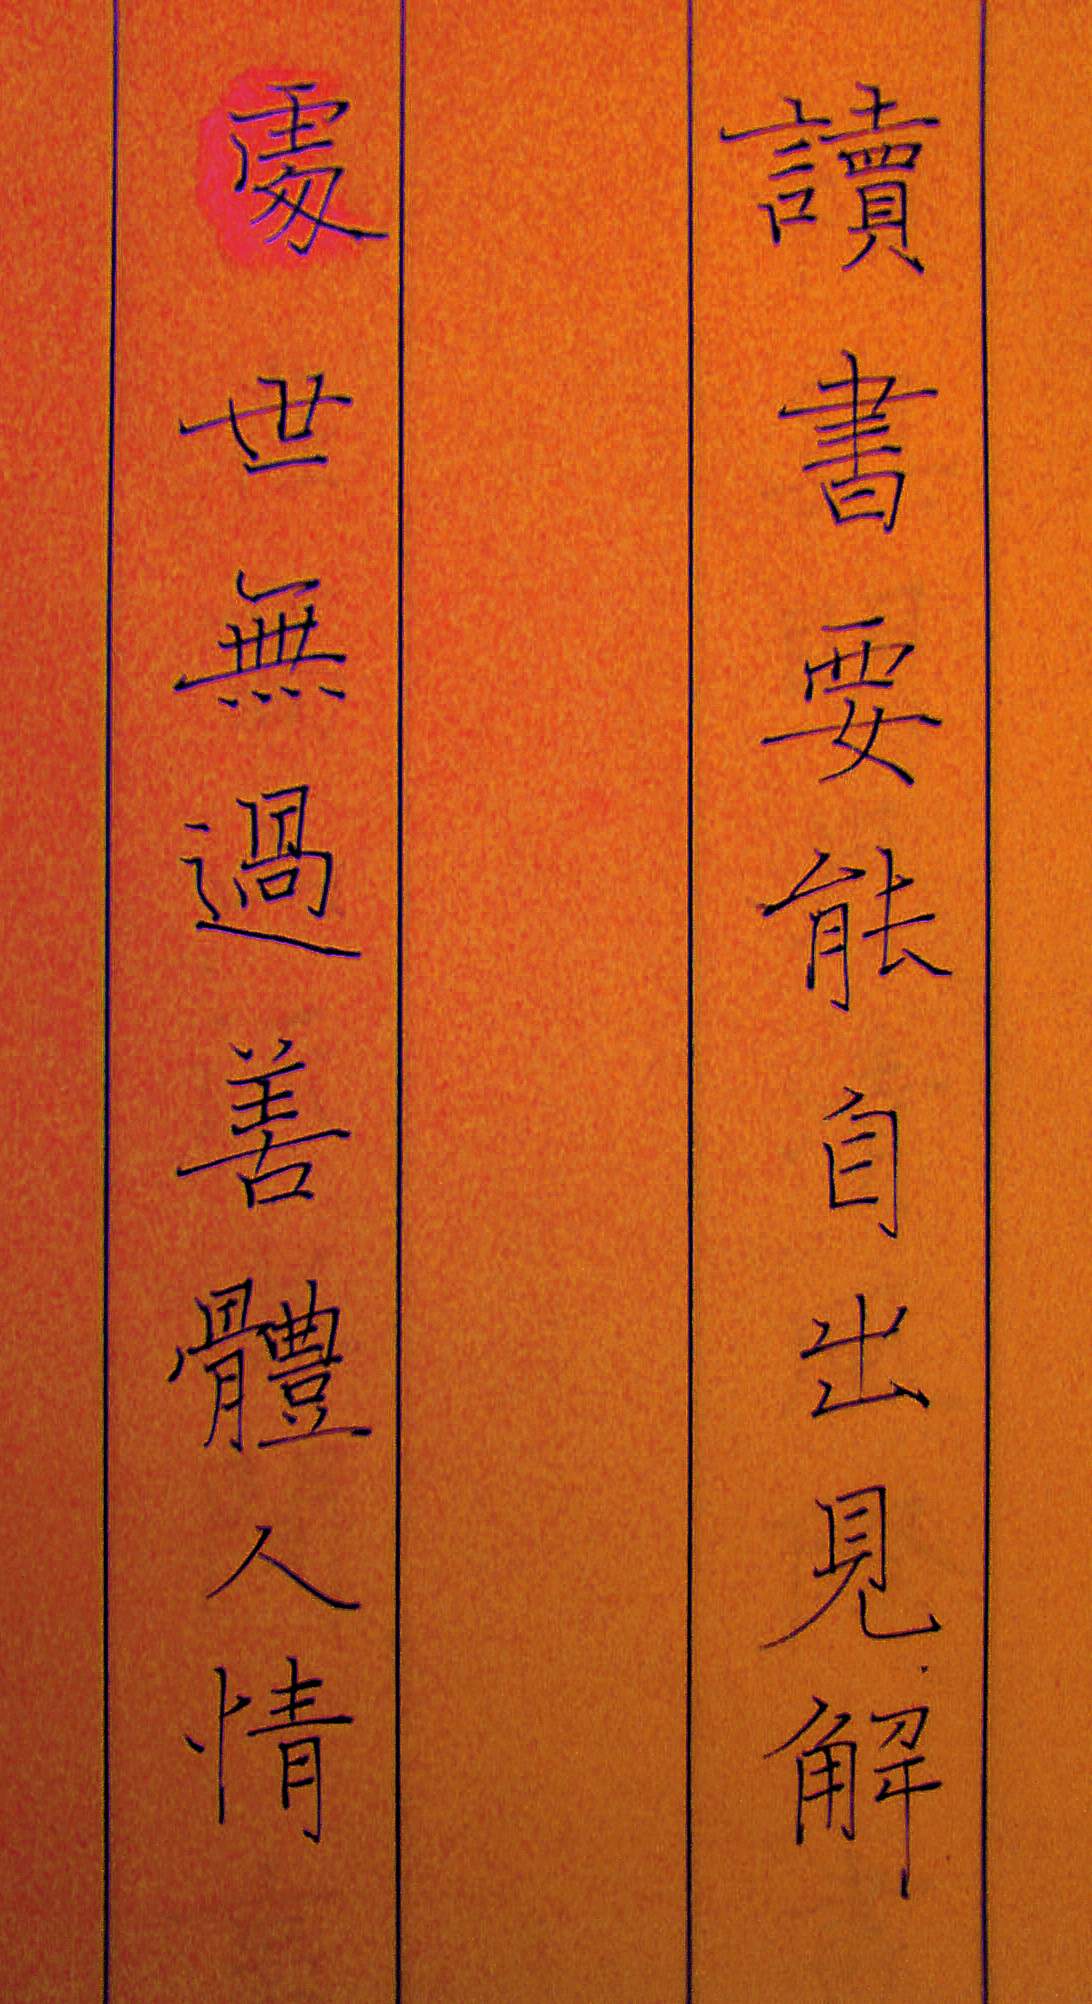 讀書要能自出見解
處世無過善體人情